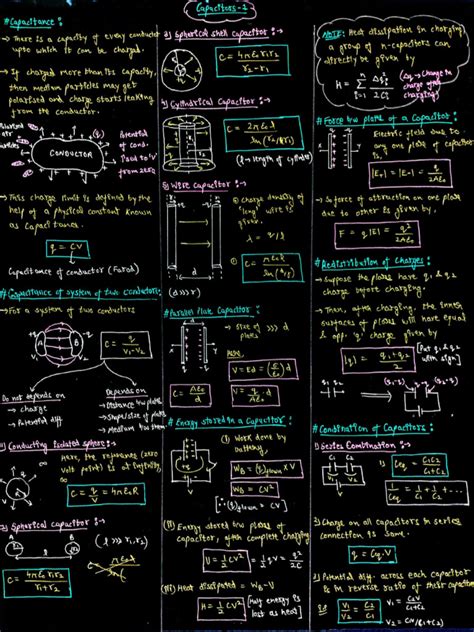 Capacitors-1
# Capacitance :→
→ There is a capacity of every conductor
upto which it can be charged.
→ If charged more than its capacity,
then medium particles may get
polarised and charge starts leaking
from the conductor.
Polarised
air
(q)
Potential
of cond.
CONDUCTOR
from zero
→ This charge limit is defined by the
help of a physical constant known
as Capacitance.
q = CV
Capacitance of conductor (Farad)
# Capacitance of system of two conductors
→ For a system of two conductors
+q
-q
A
B
C = q / V1-V2
Do not depends on
→ charge
→ Potential diff.
Depends on
→ Distance b/w plates
→ Shape/size of plates
→ Medium b/w them
1) Conducting isolated sphere :→
Here, the reference (zero
volt point) is at infinity,
C = q/V = 4πε0R
2) Spherical capacitor :→
(l >>> r1, r2)
C = 4πε0r1r2 / r1+r2
3) Spherical shell capacitor :→
C = 4πε0r1r2 / r2-r1
4) Cylindrical Capacitor :→
C = 2πε0l / ln(r2/r1)
(l → length of cylinder)
5) Wire Capacitor :→
① Charge density of
'long' wire is
given by
λ = q/l
②
(d >>> r)
# Parallel Plate Capacitor :→
→ size of
plates >>> d
Here,
C = Aε0 / d
# Energy stored in a Capacitor :→
(i) Work done by
battery,
WB = CV²
(ii) Energy stored b/w plates of
capacitor, after complete charging
U = 1/2 CV² = 1/2 qV = q²/2C
(iii) Heat dissipated = WB-U
H = 1/2 CV²
[Half energy is
lost as heat]
NOTE: Heat dissipation in charging
a group of n-capacitors can
directly be given by
# Force b/w plates of a Capacitor :
Electric field due to
any one plate of capacitor
is,
|E+| = |E-| = q / 2Aε0
→ So force of attraction on one plate
due to other is given by,
F = q|E| = q² / 2Aε0
# Redistribution of Charges :→
→ Suppose the plates have q1 & q2
charge before charging.
→ Then, after charging, the inner
surfaces of plates will have equal
& opp. 'q' charge given by
[Put q1 & q2
with sign]
# Combination of Capacitors :→
1) Series Combination :→
C1 C2
V1 V2
Ceq = C1C2 / C1+C2
1/Ceq = 1/C1 + 1/C2 + ...
→ Charge on all capacitors in series
connection is same.
q = Ceq.V
→ Potential diff. across each capacitor
V1/V2 = C2/C1